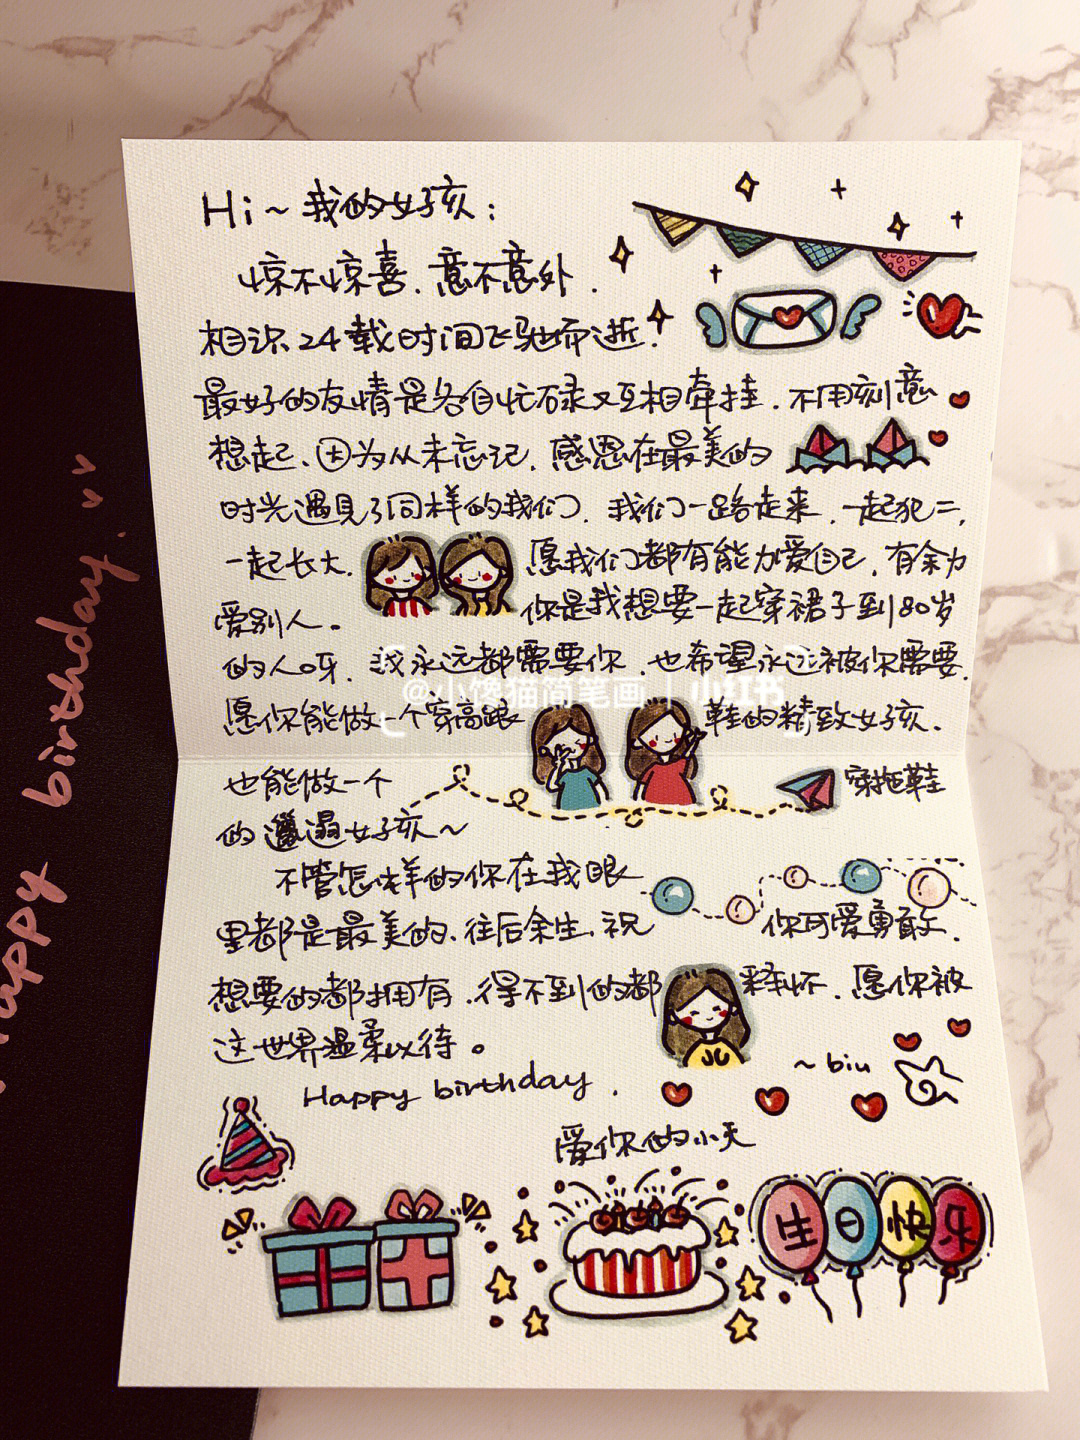 Hi~我的女孩:
惊不惊喜.意不意外.
相识24载时间飞驰而逝.
最好的友情是各自忙碌又互相牵挂.不用刻意
想起、因为从未忘记.感恩在最美的
时光遇见了同样的我们.我们一路走来.一起犯二,
一起长大. 愿我们都有能力爱自己.有余力
爱别人。 你是我想要一起穿裙子到80岁
的人呀.我永远都需要你.也希望永远被你需要.
愿你能做一个穿高跟 鞋的精致女孩.
也能做一个 穿拖鞋
的邋遢女孩~
不管怎样的你在我眼
里都是最美的、往后余生、祝 你可爱勇敢.
想要的都拥有.得不到的都 释怀.愿你被
这世界温柔以待。
Happy birthday.
~biu
爱你的小天
生日快乐
@小馋猫简笔画 | 小红书
Happy birthday.